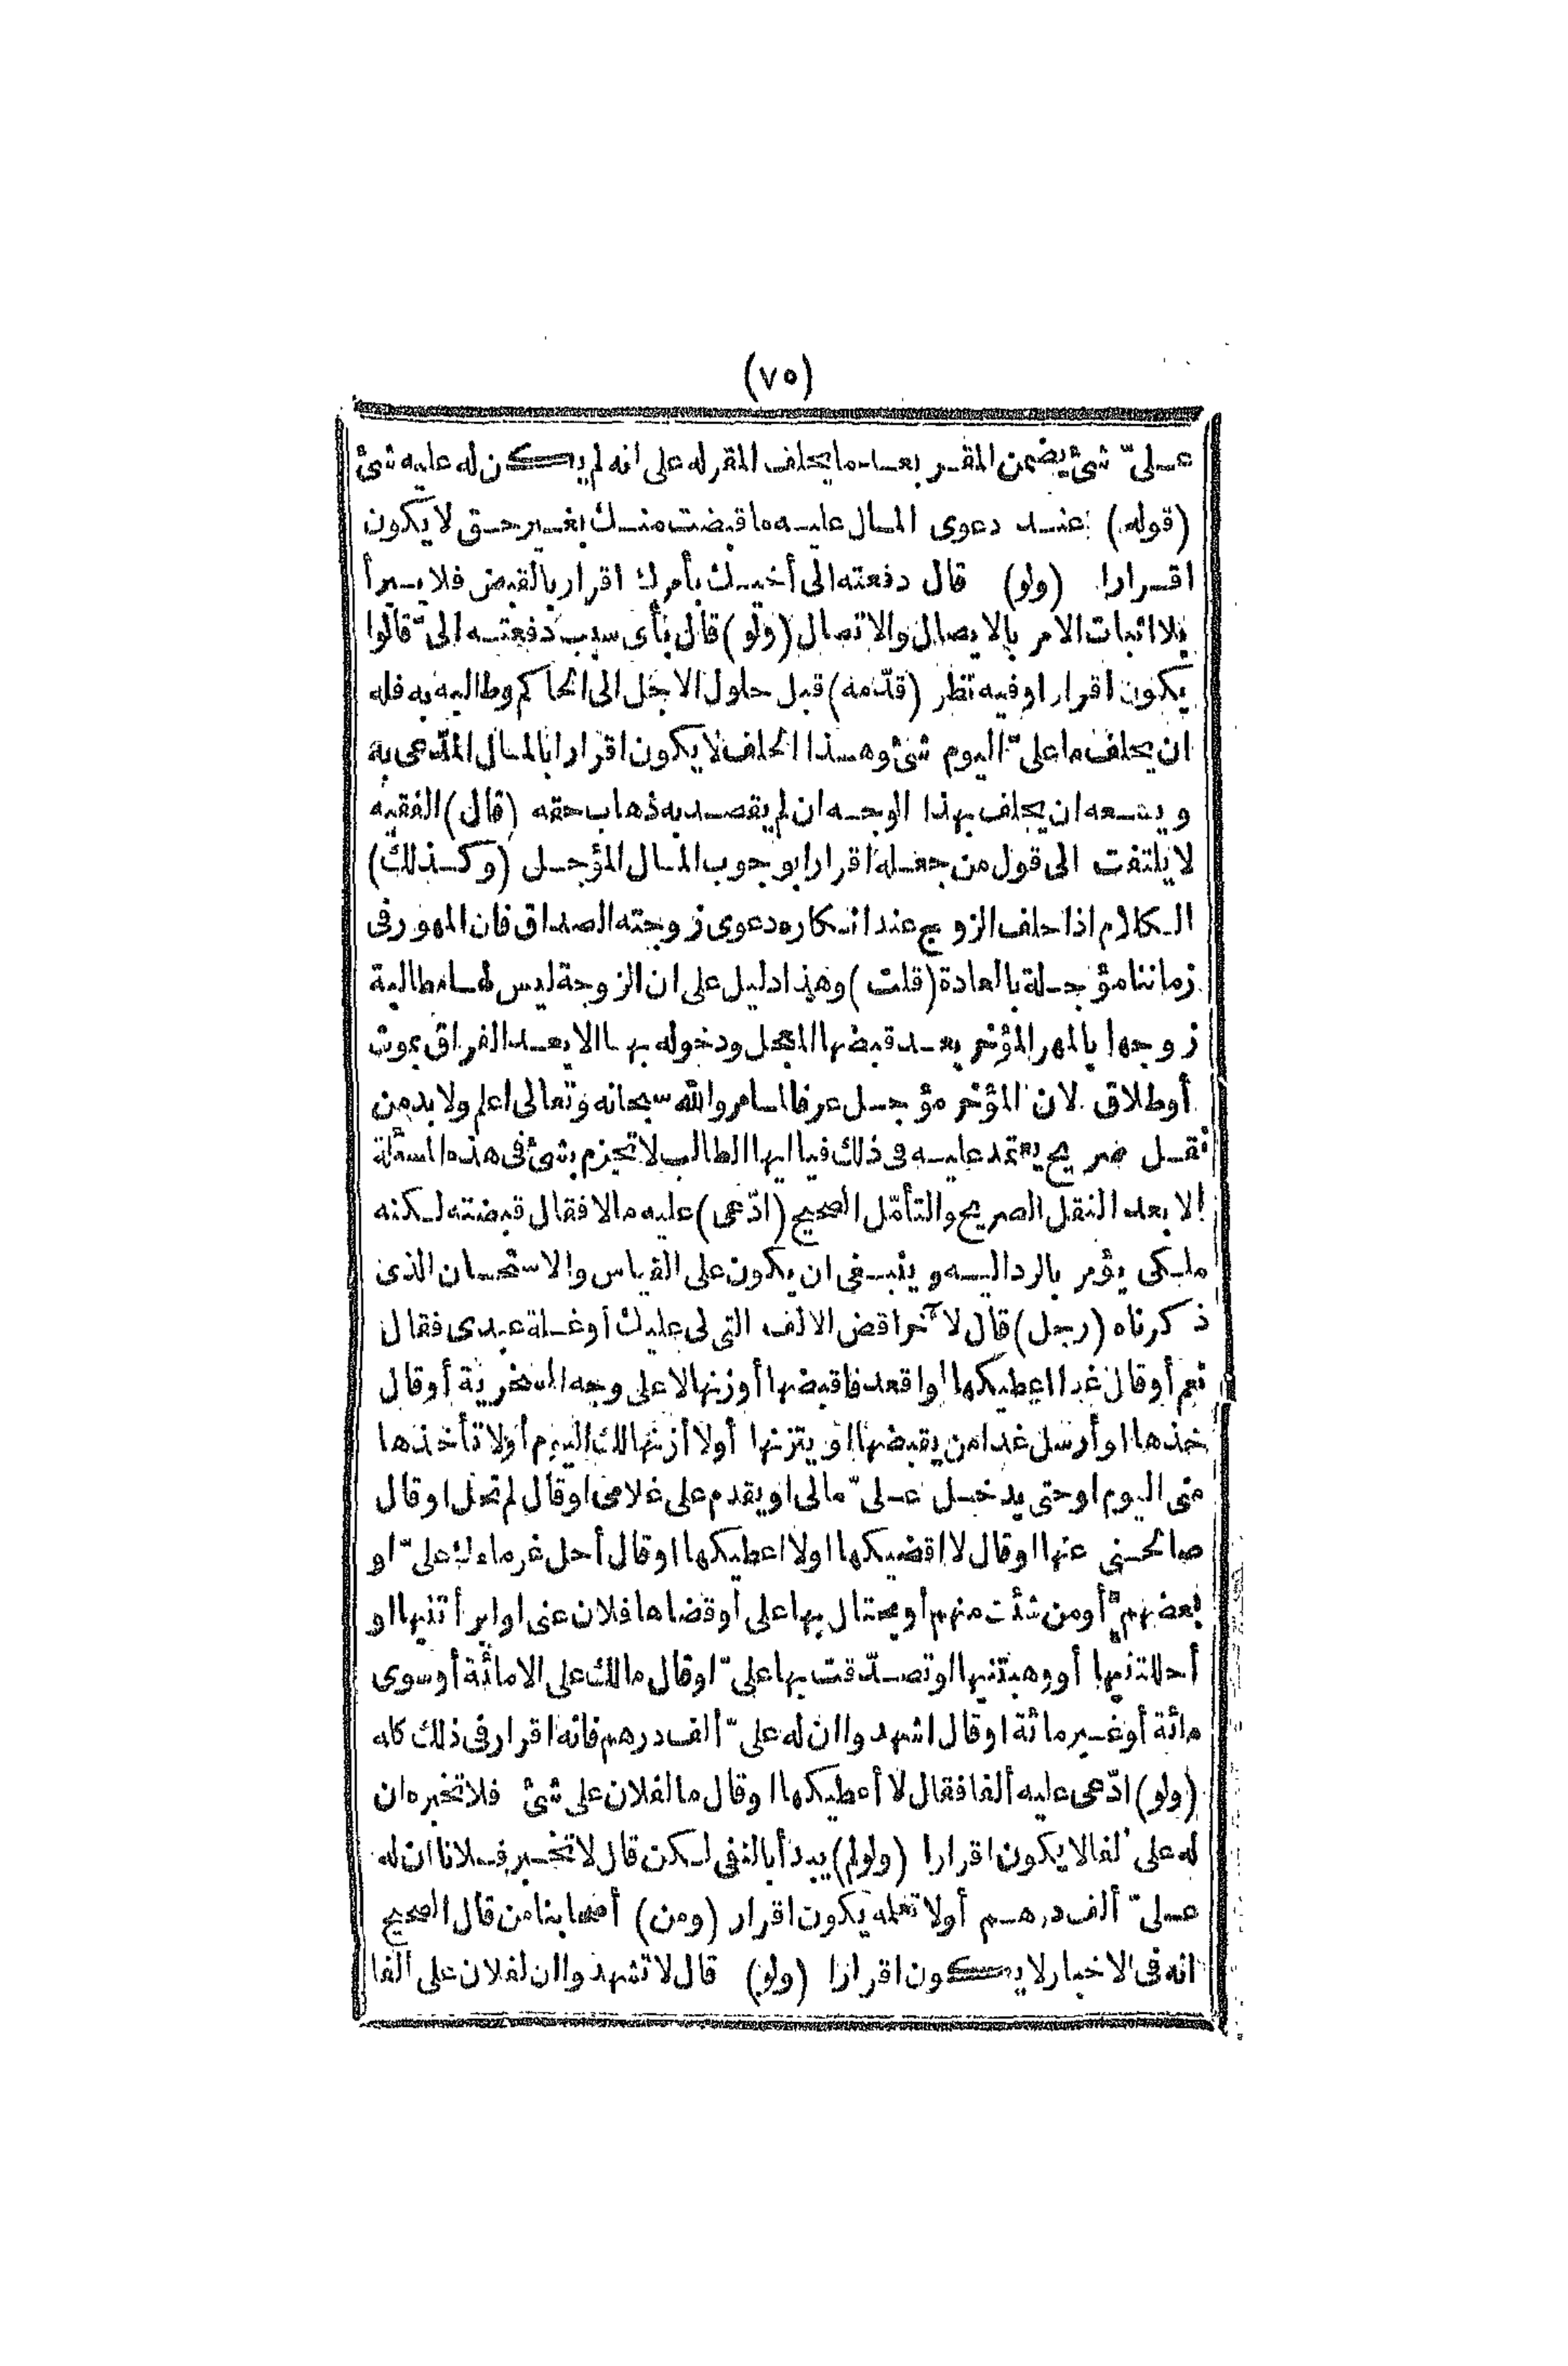 (٧٥)
علىّ شئ يضمن المقر بعدما يحلف المقر له على انه لم يكن له عليه شئ
(قوله) عند دعوى المال عليه ما قبضت منك بغير حق لا يكون
اقرارا (ولو) قال دفعته الى أخيك بأمرك اقرار بالقبض فلا يبرأ
بلا اثبات الامر بالايصال والاتصال (ولو) قال بأى سبب دفعته الىّ قالوا
يكون اقرارا وفيه نظر (قدّمه) قبل حلول الاجل الى الحاكم وطالبه به فله
ان يحلف ما علىّ اليوم شئ وهذا الحلف لا يكون اقرارا بالمال المدّعى به
ويسعه ان يحلف بهذا الوجه ان لم يقصد به ذهاب حقه (قال) الفقيه
لا يلتفت الى قول من جعله اقرارا بوجوب المال المؤجل (وكذلك)
الكلام اذا حلف الزوج عند انكاره دعوى زوجته الصداق فان المهور فى
زماننا مؤجلة بالعادة (قلت) وهذا دليل على ان الزوجة ليس لها مطالبة
زوجها بالمهر المؤخر بعد قبضها المعجل ودخوله بها الا بعد الفراق بموت
أو طلاق لان المؤخر مؤجل عرفا لما مر والله سبحانه وتعالى اعلم ولا بد من
نقل صريح يعتمد عليه فى ذلك فيا ايها الطالب لا تجزم بشئ فى هذه المسألة
الا بعد النقل الصريح والتأمّل الصحيح (ادّعى) عليه مالا فقال قبضته لكنه
ملكى يؤمر بالرد اليه وينبغى ان يكون على القياس والاستحسان الذى
ذكرناه (رجل) قال لآخر اقض الالف التى لى عليك أو غلة عبدى فقال
نعم أو قال غدا اعطيكها او اقعد فاقبضها أو زنها لا على وجه السخرية أو قال
خذها او أرسل غدا من يقبضها او يتزنها أو لا أزنها لك اليوم أو لا تأخذها
منى اليوم او حتى يدخل علىّ مالى او يقدم على غلامى او قال لم تحل او قال
صالحنى عنها او قال لا اقضيكها او لا اعطيكها او قال أحل غرماءك علىّ او
بعضهم أو من شئت منهم أو يحتال بها على أو قضاها فلان عنى او ابرأتنيها او
أحللتنيها أو وهبتنيها او تصدّقت بها علىّ او قال مالك على الا مائة أو سوى
مائة أو غير مائة او قال اشهدوا ان له علىّ ألف درهم فانه اقرار فى ذلك كله
(ولو) ادّعى عليه ألفا فقال لا أعطيكها او قال ما لفلان على شئ فلا تخبره ان
له على الفا لا يكون اقرارا (ولو لم) يبدأ بالنفى لكن قال لا تخبر فلانا ان له
علىّ ألف درهم أو لا تعلمه يكون اقرار (ومن) أصحابنا من قال الصحيح
انه فى الاخبار لا يكون اقرارا (ولو) قال لا تشهدوا ان لفلان على الفا